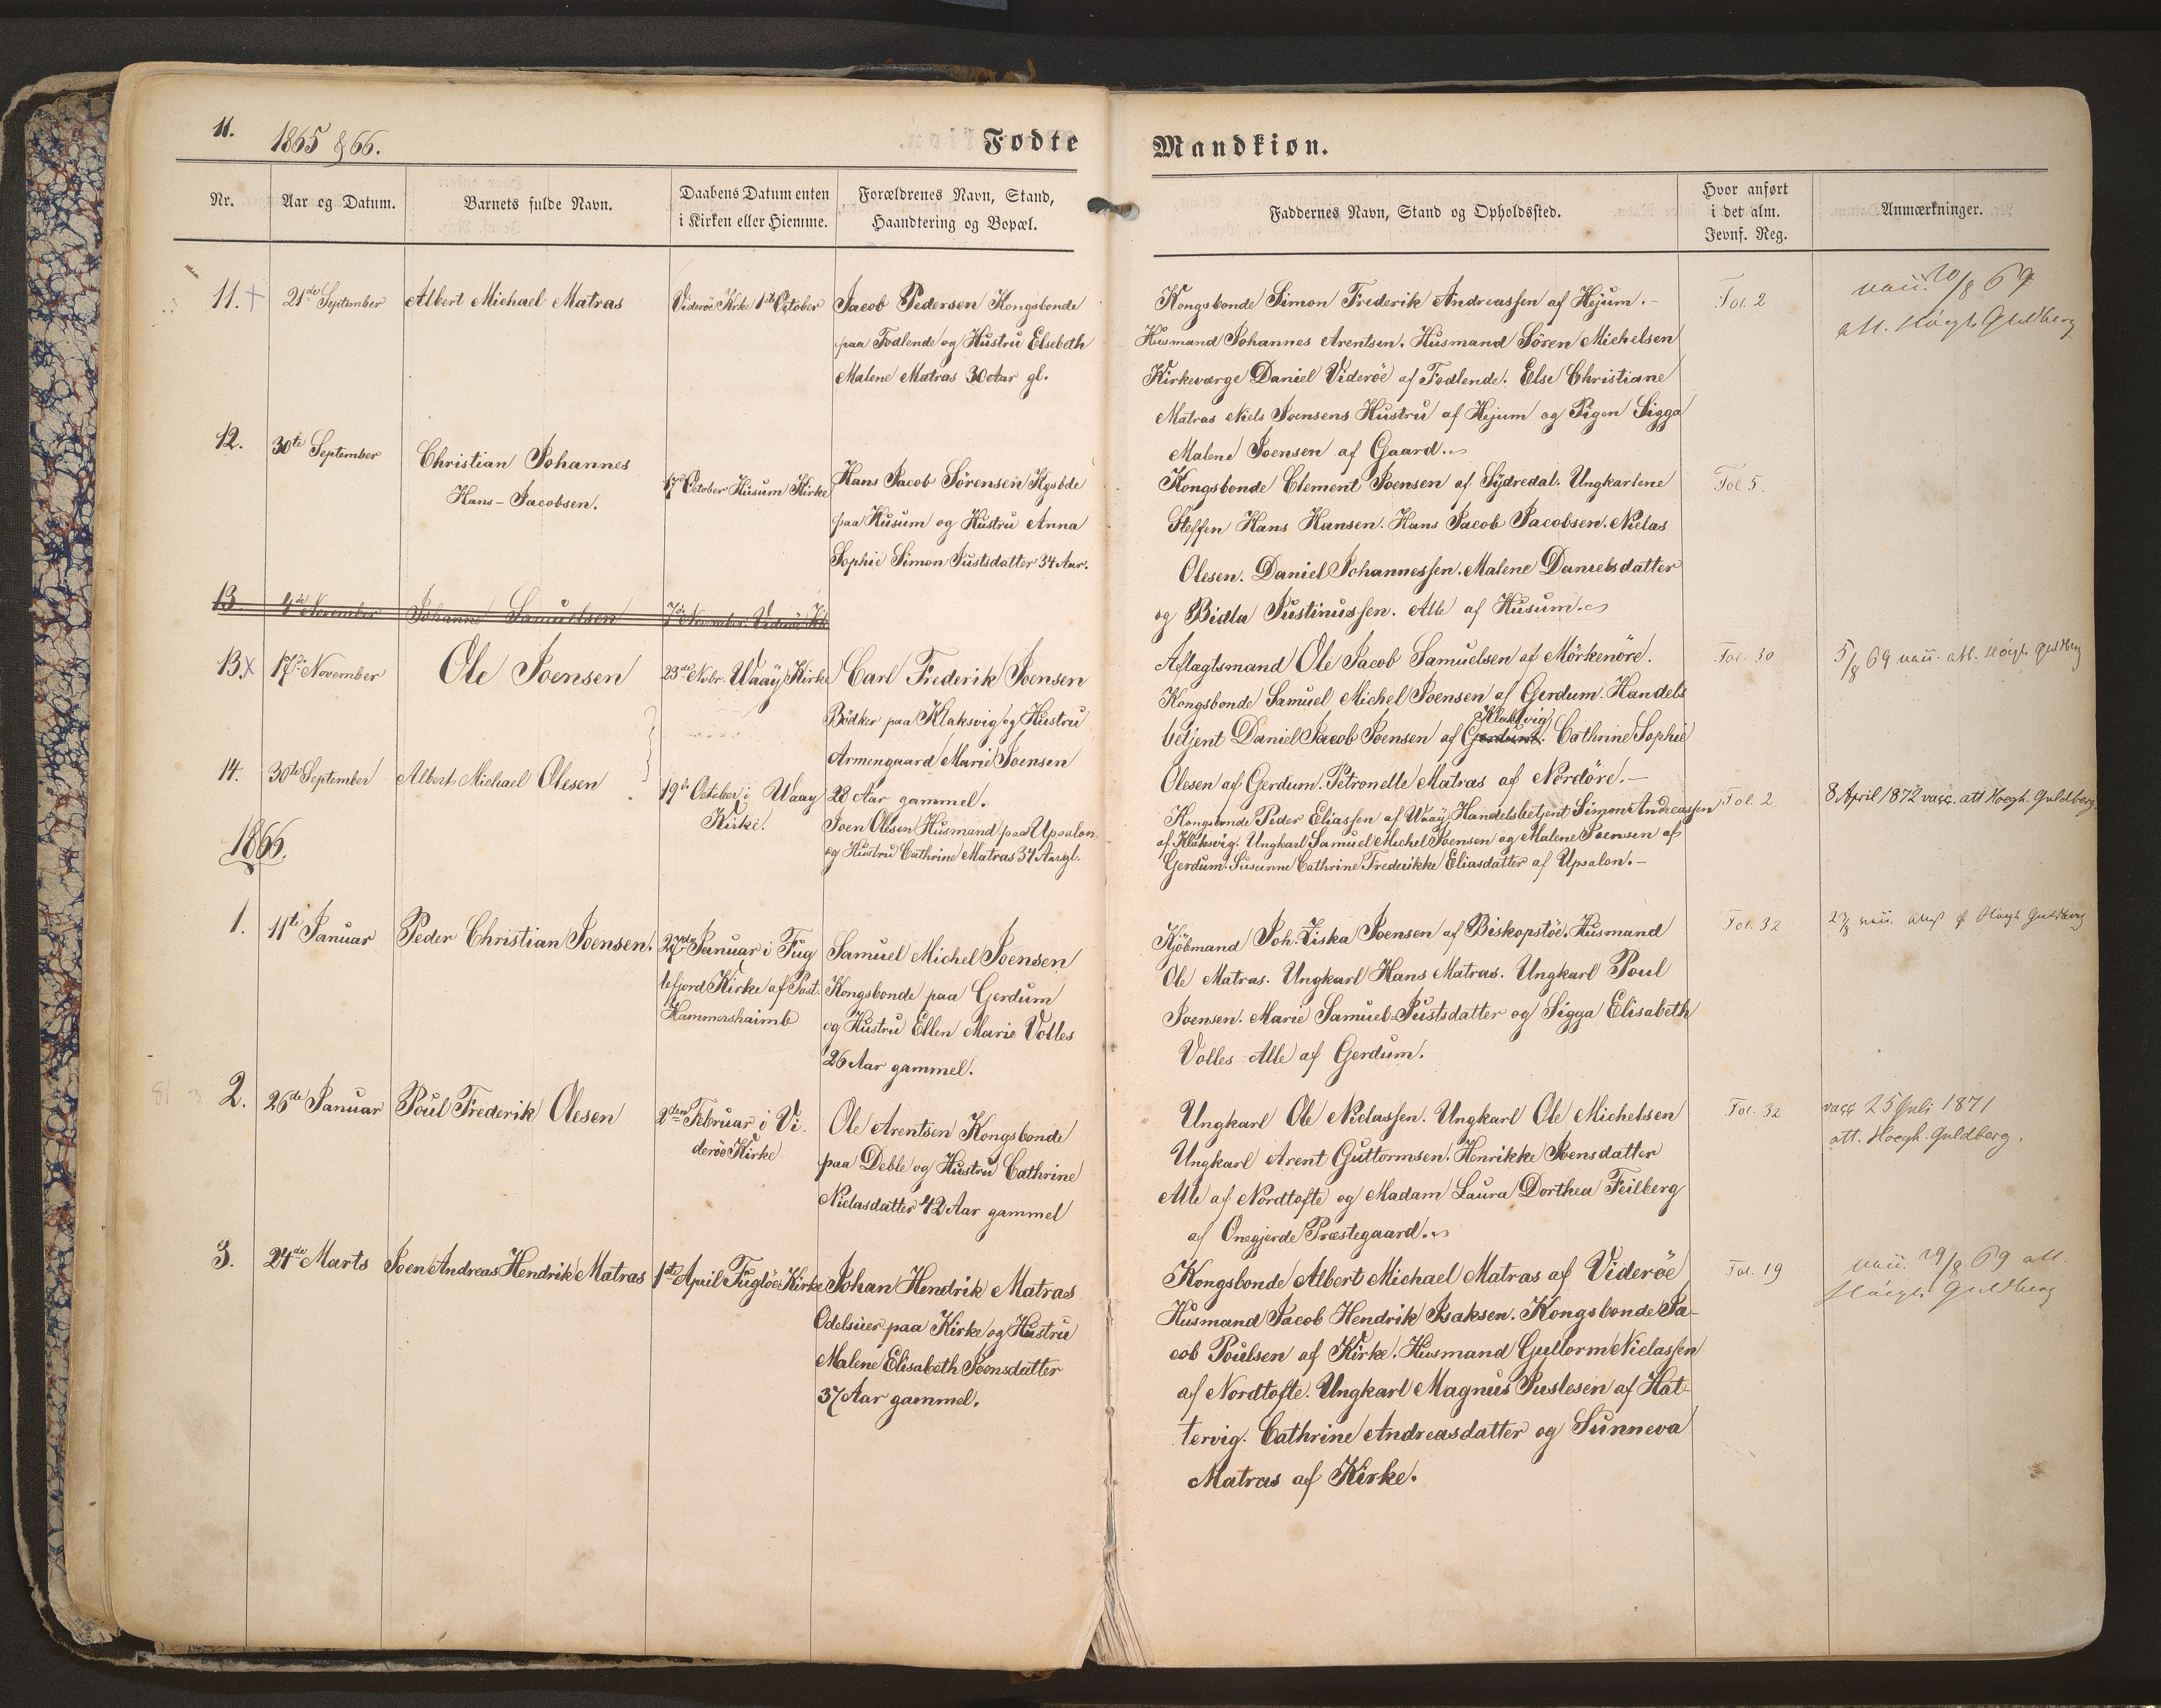 11.
1865 & 66.
Fødte
Mandkiøn.
Nr.
Aar og Datum.
Barnets fulde Navn.
Daabens Datum enten
i Kirken eller Hiemme.
Forældrenes Navn, Stand,
Haandtering og Bopæl.
Faddernes Navn, Stand og Opholdssted.
Hvor anført
i det alm.
Jevnf. Reg.
Anmærkninger.
11. +
21de September
Albert Michael Matras
Viderøe Kirke 1ste October
Jacob Pedersen Kongsbonde
paa Fodlende og Hustru Elsebeth
Malene Matras 30 Aar gl.
Kongsbonde Simon Frederik Andreassen af Hejum.-
Husmand Johannes Arentsen. Husmand Sören Michelsen
Kirkeværge Daniel Viderøe af Fodlende. Else Christiane
Matras Niels Joensens Hustru af Hejum og Pigen Sigga
Malene Joensen af Gaard.
Fol. 2
vacc. 20/8 69
att. Høegh Guldberg
12.
30te September
Christian Johannes
Hans-Jacobsen.
17de October Husum Kirke
Hans Jacob Sörensen Kgsbde
paa Husum og Hustru Anna
Sophie Simon Justsdatter 34 Aar.
Kongsbonde Clement Joensen af Sydredal. Ungkarlene
Steffen Hans Hansen. Hans Jacob Jacobsen. Niclas
Olesen. Daniel Johannessen. Malene Danielsdatter
og Bidla Justinussen. Alle af Husum.
Fol 5.
13.
4de November
Johanne Samuelsen
7de November Viderøe Kk
13. x
17de November
Ole Joensen
23de Nobr. Waay Kirke
Carl Frederik Joensen
Bødker paa Klaksvig og Hustru
Armengaard Marie Joensen
28 Aar gammel.
Aflagtsmand Ole Jacob Samuelsen af Mörkenöre.
Kongsbonde Samuel Michel Joensen af Gerdum. Handels
betjent Daniel Jacob Joensen af Gerdum. Klaksvig Cathrine Sophie
Olesen af Gerdum. Petronelle Matras af Nordöre.-
Fol. 30
5/8 69 vacc. att. Høegh Guldberg
14.
30te September
Albert Michael Olesen
19de October i Waay
Kirke.
Joen Olesen Husmand paa Upsalon
og Hustru Cathrine Matras 34 Aar gl.
Kongsbonde Peder Eliassen af Waay. Handelsbetjent Simon Andreassen
af Klaksvig. Ungkarl Samuel Michel Joensen og Malene Joensen af
Gerdum. Susanne Cathrine Frederikke Eliasdatter af Upsalon.-
Fol. 2
8 April 1872 vacc. att Hoegh. Guldberg.
1866.
1.
11te Januar
Peder Christian Joensen.
27de Januar i Fug
lefjord Kirke af Past.
Hammershaimb
Samuel Michel Joensen
Kongsbonde paa Gerdum
og Hustru Ellen Marie Volles
26 Aar gammel.
Kjöbmand Joh. Ziska Joensen af Biskopstöe. Husmand
Ole Matras. Ungkarl Hans Matras. Ungkarl Poul
Joensen. Marie Samuel-Justsdatter og Sigga Elisabeth
Volles Alle af Gerdum.
Fol. 32
23/8 vacc. Høegh Guldberg
2.
26de Januar
Poul Frederik Olesen
2den Februar i Vi
derøe Kirke
Ole Arentsen Kongsbonde
paa Deble og Hustru Cathrine
Niclasdatter 42 Aar gammel
Ungkarl Ole Niclassen. Ungkarl Ole Michelsen
Ungkarl Arent Guttormsen. Henrikke Joensdatter
Alle af Nordtofte og Madam Laura Dorthea Feilberg
af Onegjerde Præstegaard.
Fol. 32
vacc 25 Juli 1871
att. Hoegh. Guldberg.
3.
24de Marts
Joen Andreas Hendrik Matras
1ste April Fuglöe Kirke
Johan Hendrik Matras
Odelsier paa Kirke og Hustru
Malene Elisabeth Joensdatter
37 Aar gammel.
Kongsbonde Albert Michael Matras af Viderøe
Husmand Jacob Hendrik Isaksen. Kongsbonde Ja-
cob Poulsen af Kirke. Husmand Guttorm Niclassen
af Nordtofte. Ungkarl Magnus Juslesen af Hat-
tervig. Cathrine Andreasdatter og Sunneva
Matras af Kirke.
Fol. 19
vacc. 29/8 69 att.
Høegh Guldberg